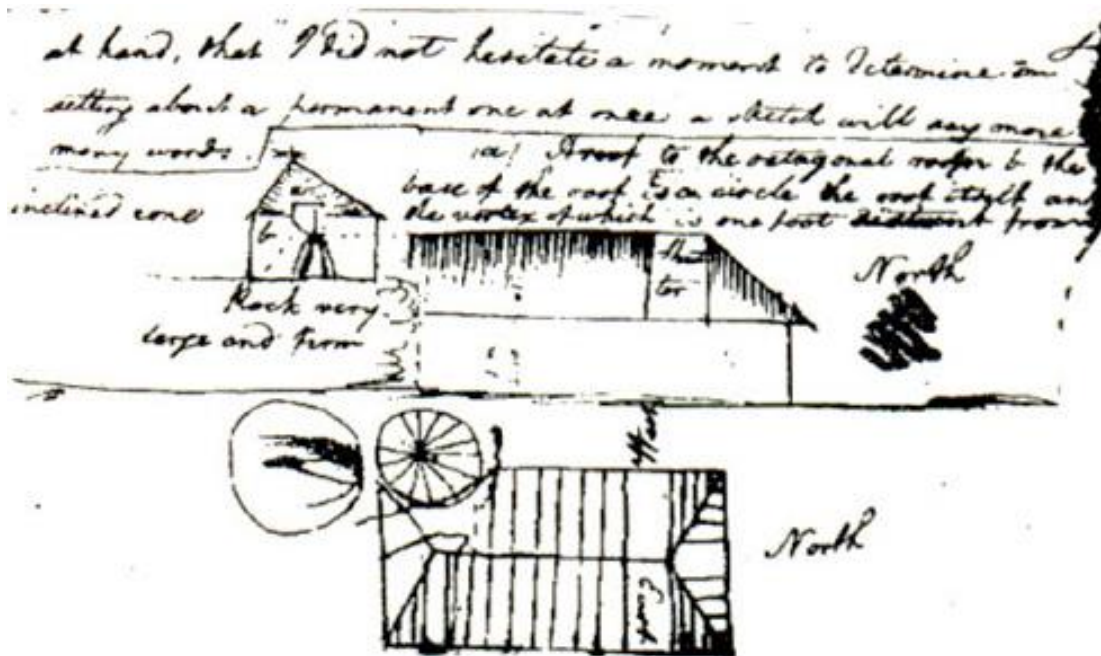 at hand, that I did not hesitate a moment to determine on
setting about a permanent one at once a sketch will say more
many words.
(a) A roof to the octagonal room b the
base of the roof is a circle the roof itself an
inclined cone the vortex of which is one foot distant from
a
b
Rock very
large and from
Shutter
North
West
North
East